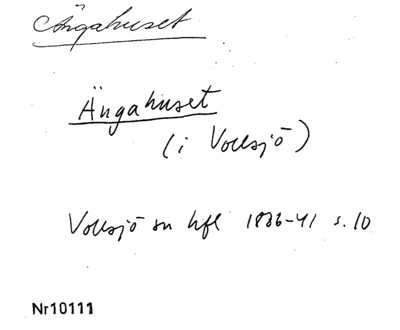 Ängahuset
Ängahuset
(i Vollsjö)
Vollsjö sn hfl 1836-41 s. 10
Nr10111